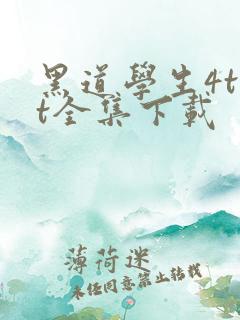 黑道學生4t
t全集下載
薄荷迷
未经同意禁止转载